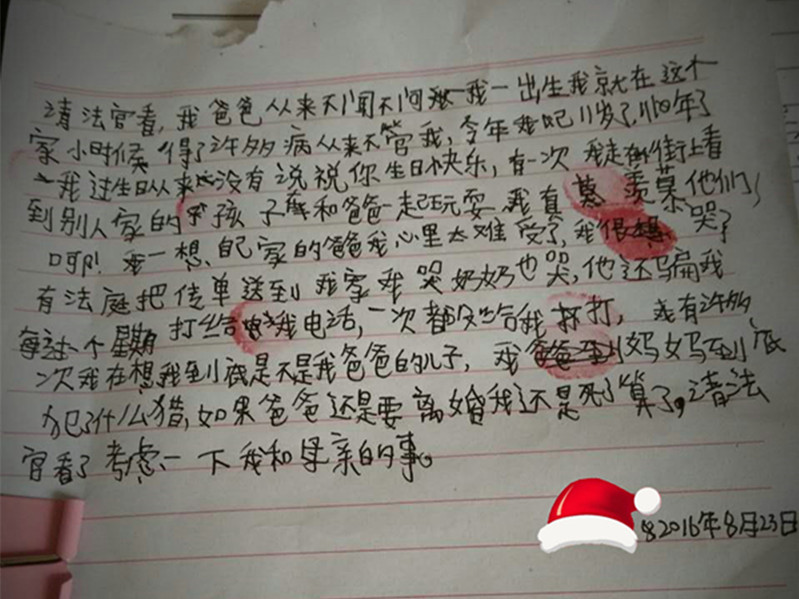 请法官看,我爸爸从来不闻不问我一出生我就在这个
家小时候得了许多病从来不管我,今年我吧11岁了,11四年了
一我过生日从来没有说祝你生日快乐,有一次我走在街上看
到别人家的孩子和爸爸一起玩耍我真羡慕他们
呵!我一想自己家的爸爸我心里太难受了,我很想哭了
有法庭把传单送到我家我哭奶奶也哭,他还骗我
每过一个星期打给我电话,一次都没给我打,我有许多
次我在想我到底是不是我爸爸的儿子,我爸爸到妈妈到底
犯了什么猎,如果爸爸还是要离婚我还是死了算了,请法
官看了考虑一下我和母亲的事。
2016年8月23日